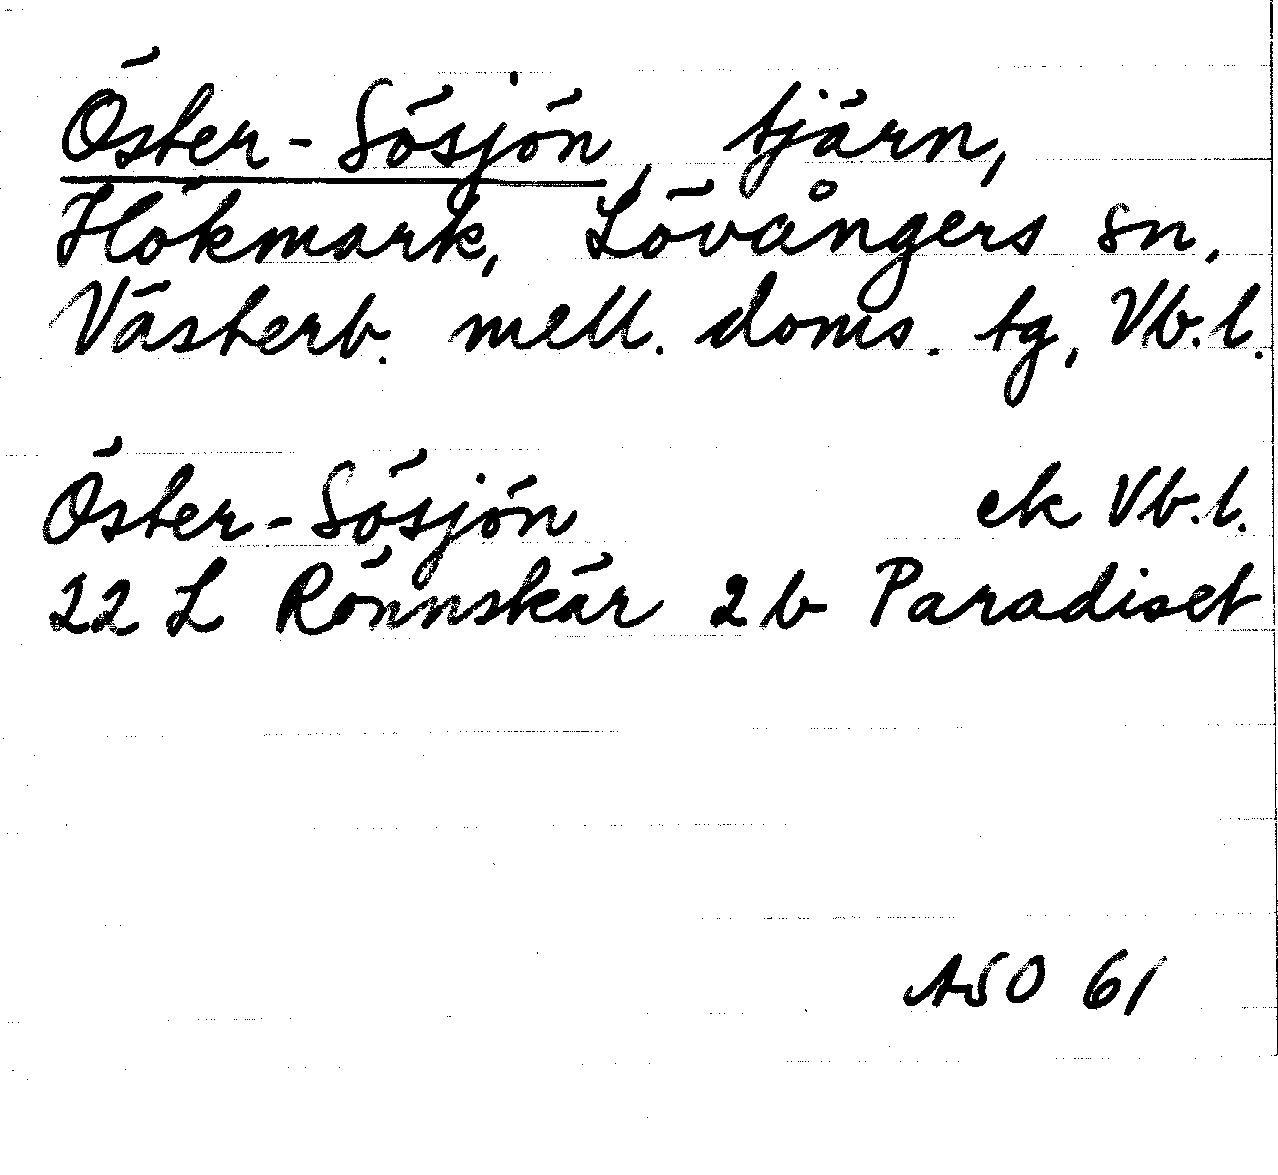 Öster-Sösjön, tjärn,
Hökmark, Lövångers sn.
Västerb. mell. doms. tg, Vb.l.
Öster-Sösjön ek Vb.l.
22 L Rönnskär 2b Paradiset
ASO 61